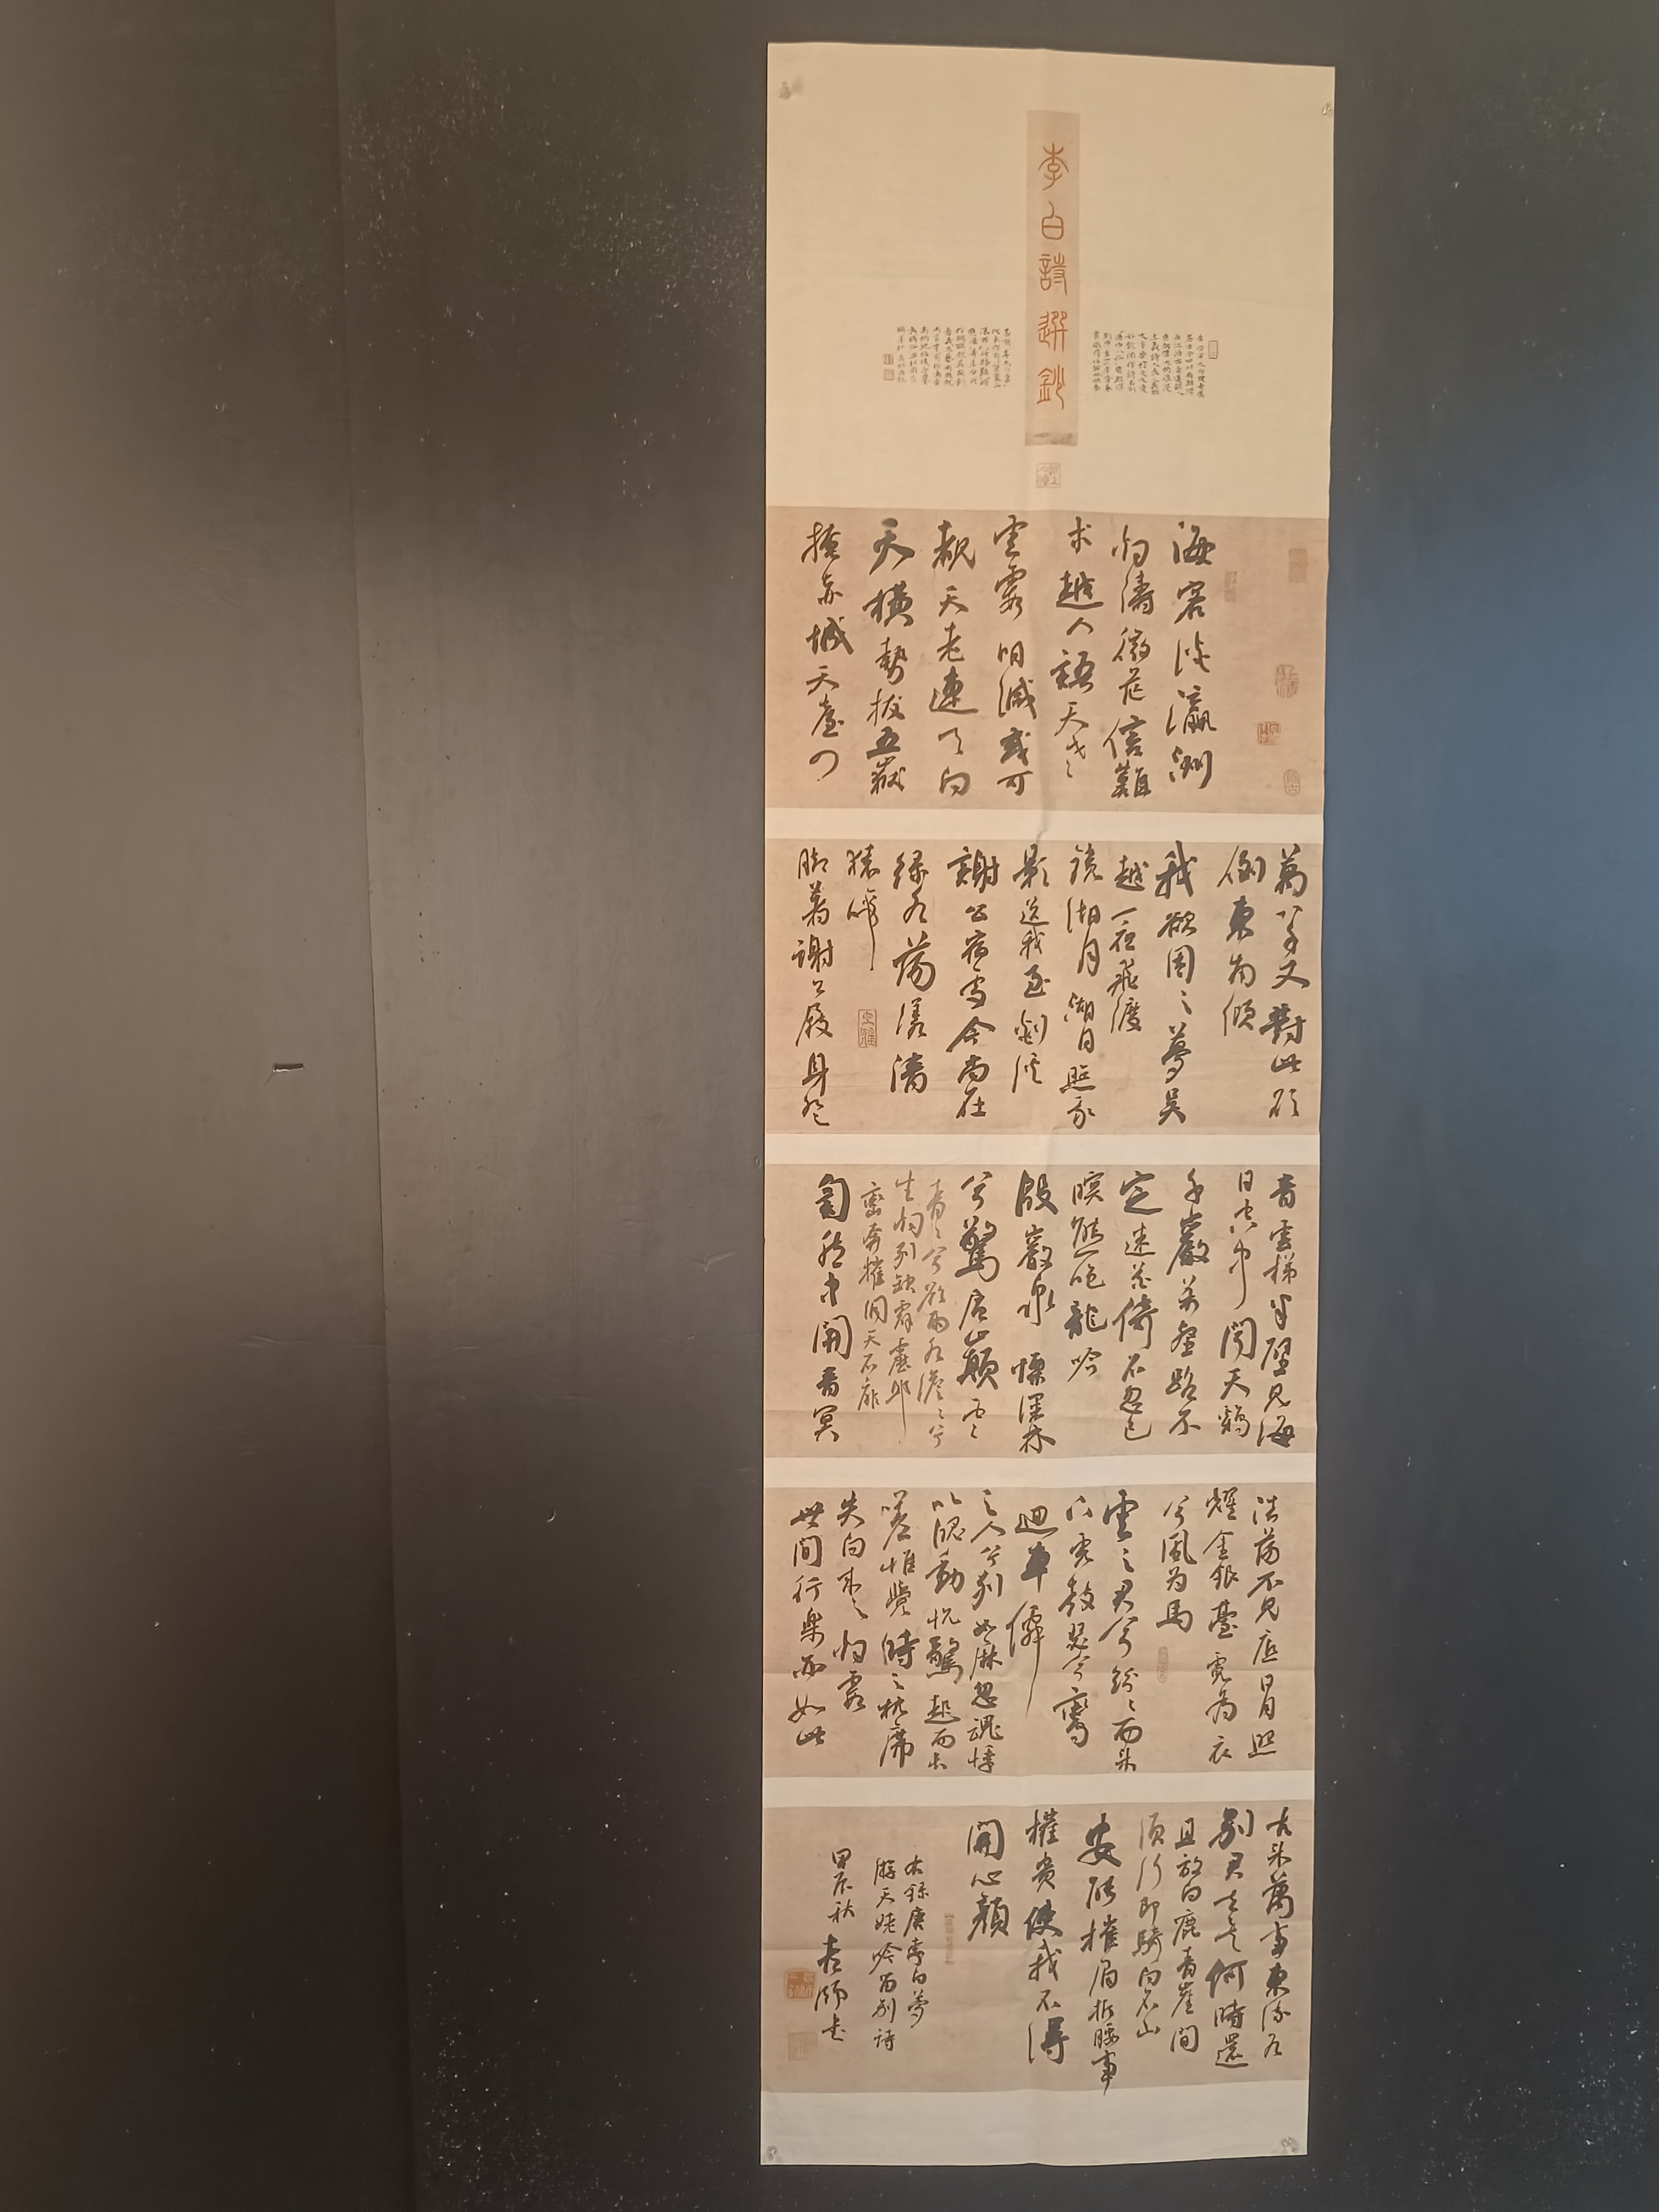 李白詩選鈔
海客談瀛洲
烟濤微茫信難
求越人語天姥
雲霞明滅或可
覩天姥連天向
天橫勢拔五嶽
掩赤城天臺四
萬八千丈對此欲
倒東南傾
我欲因之夢吳
越一夜飛渡
鏡湖月湖月照我
影送我至剡溪
謝公宿處今尚在
綠水蕩漾清
猿啼
腳著謝公屐身登
青雲梯半壁見海
日空中聞天鷄
千巖萬壑路不
定迷花倚石忽已
暝熊咆龍吟
殷巖泉慄深林
兮驚層巔雲
青青兮欲雨水澹澹兮
生烟列缺霹靂邱
巒崩摧洞天石扉
訇然中開青冥
浩蕩不見底日月照
耀金銀臺霓為衣
兮風為馬
雲之君兮紛紛而來
下虎鼓瑟兮鸞
迴車仙
之人兮列如麻忽魂悸
以魄動怳驚起而長
嗟惟覺時之枕席
失向來之烟霞
世間行樂亦如此
古來萬事東流水
別君去兮何時還
且放白鹿青崖間
須行即騎向名山
安能摧眉折腰事
權貴使我不得
開心顏
右錄唐李白夢
游天姥吟留別詩
甲辰秋